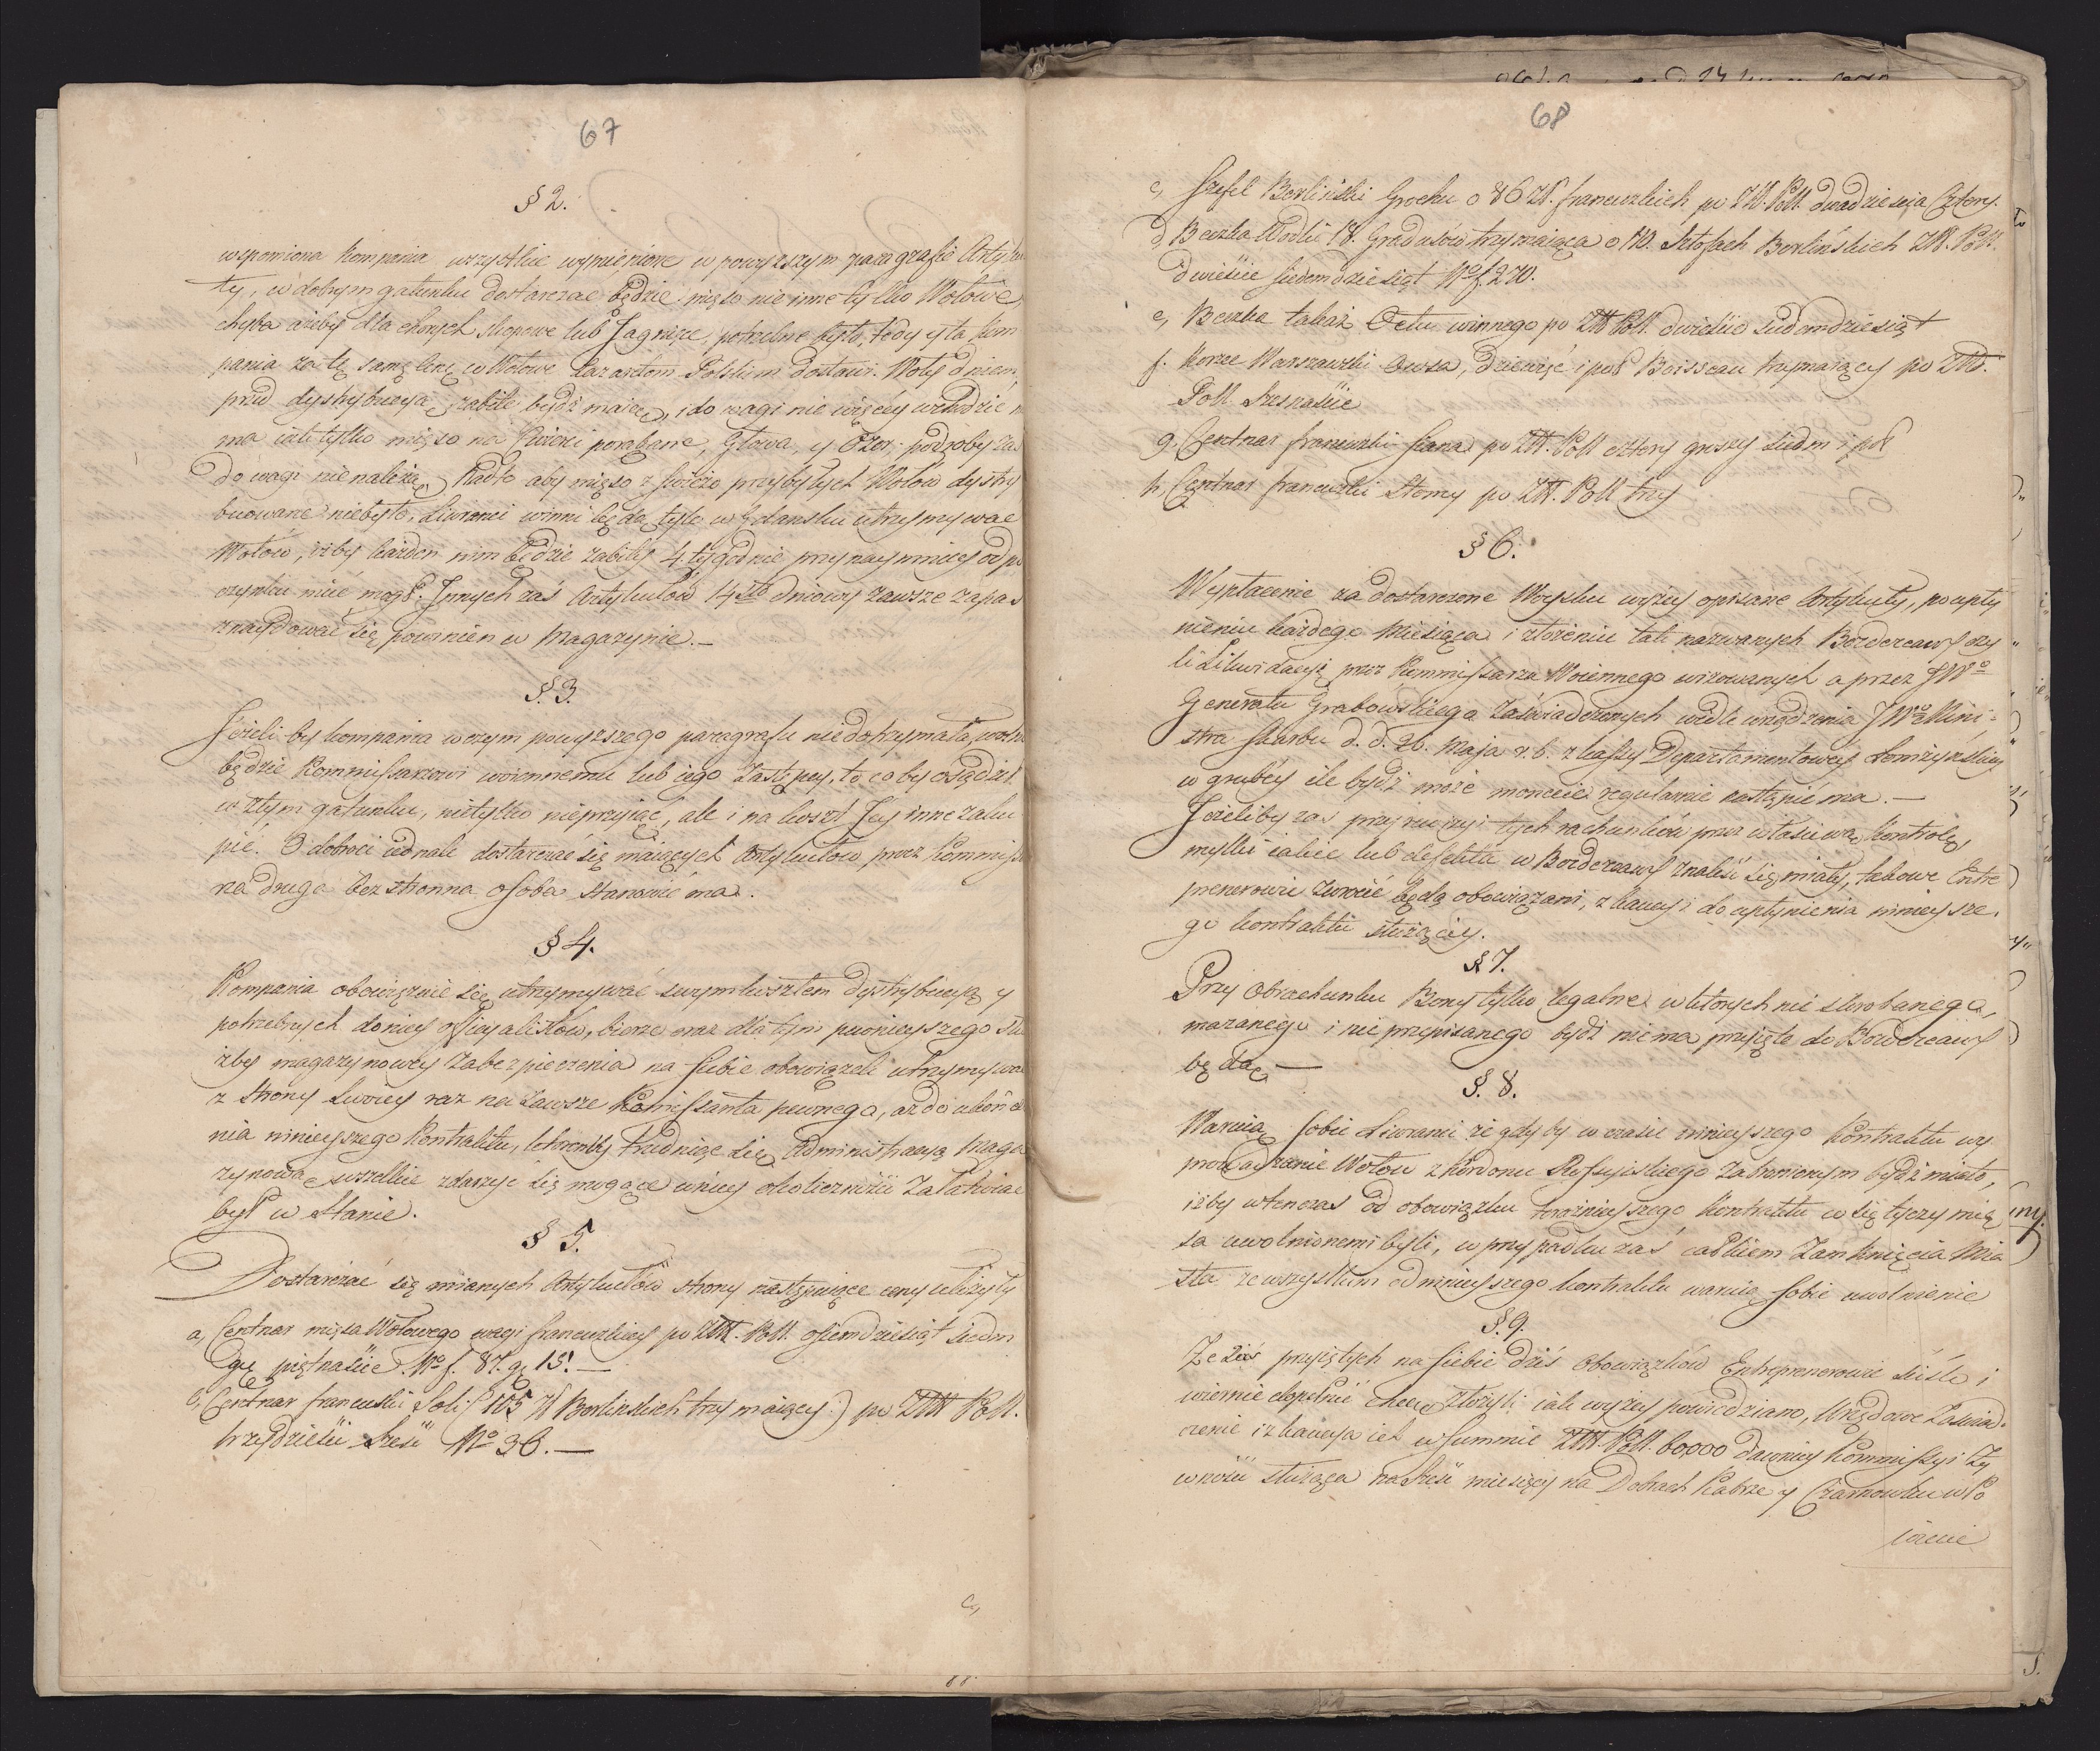 67
§ 2.
wspomiona Kompania wszystkie wymienione w powyższym paragrafie Artyku
ły, w dobrym gatunku dostarczać będzie, mięso nie inne tylko Wołowe,
chyba ażeby dla chorych skopowe lub Jagnięce potrzebne było, tedy y ta kom
pania za tę samę cenę co Wołowe Lazaretom Polskim dostawi. Woły dniem
przed dystrybucyą zabite bydź maiące, i do wagi nie więcey wchodzić
ma iak tylko mięso na ćwierci porąbane, Głowa, y Ozor, podroby zaś
do wagi nie należą. Nadto aby mięso z świeżo przybyłych Wołów dystry
buowane niebyło, Liweranci winni będą tyle w Gdańsku utrzymywać
Wołów, iżby każden nim będzie zabity 4 tygodnie przynaymniey odpo
czynku mieć mógł. Innych zaś Artykułów 14sto dniowy zawsze zapas
znaydować się powinien w Magazynie.—
§. 3.
Jeżeli by kompania w czym powyższego paragrafu nie dotrzymała, wolno
będzie Kommissarzowi woiennemu lub iego Zastępcy, to co by osądził
w złym gatunku, nietylko nieprzyiąć, ale i na koszt Jey inne zaku
pić. O dobroci iednak dostarczać się maiących Artykułow, prócz Kommissa
na druga bezstronna osoba stanowić ma.
§ 4.
Kompania obowięzuie się utrzymywać swym kosztem dystrybucyą y
potrzebnych do niey officyalistów, bierze oraz dla tym pewnieyszego słu
żby magazynowey zabezpieczenia na siebie obowiązek utrzymywać
z strony swoiey raz na zawsze Komissanta pewnego, aż do ukończe
nia ninieyszego Kontraktu, którenby trudniąc się administracyą Maga
zynową wszelkie zdarzyć się mogące w niey okoliczności załatwiać
był w stanie.
§ 5.
Dostarczać się mianych Artykułów strony następuiące ceny ułożyły
a, Centnar mięsa Wołowego wagi francuzkiey po ZłŁ. Poll. ośiemdzieśiąt śiedm
gr. piętnaście No f. 87. gr. 15.—
b, Centnar francuski Soli (: 105 ℔ Berlinskich trzymaiący :) po ZłŁ Poll.
trzydzieści sześć No 36.—
c,
68
c, Szefel Berliński Grochu o 86 ℔. francuzkich po Zł. Poll. dwadzieścia Cztery.
d, Beczka Wodki 18. Gradusów trzymaiąca o 110. Sztofach Berlińskich Zł. Poll.
dwieście siedemdziesiąt No f. 270.
e, Beczka takaż Octu winnego po Zł Poll. dwieście siedemdziesiąt
f. Korzec Warszawski Owsa, dziewięć i pół Boisseau trzymaiący po Zł.
Poll. szesnaście
g. Centnar francuzki Siana po Zł. Poll cztery groszy siedm i pół
h, Centnar francuzki Słomy po Zł. Poll trzy
§ 6.
Wypłacenie za dostarczone Woysku wyżey opisane Artykuły, po upły
nieniu każdego Miesiąca i złożeniu tak nazwanych Bordereaux czy
li Likwidacyi przez Kommissarza Woiennego wizowanych a przez JWo
Generała Grabowskiego zaświadczonych wedle urządzenia JWgo Mini-
stra Skarbu d. d. 26. Maja r. b. z kassy Departamentowey Łomżyńskiey
w grubey ile bydź może moncie regularnie nastąpić ma.—
Jeżeliby zaś przy rewizyi tych rachunków przez właściwą Kontrolę,
myłki iakie lub defekta w Bordereaux znaleść się miały, takowe Entre
prenerowie zwrócić będą obowiązani, z kaucyi do upłynienia ninieysze.
go kontraktu służącey.
§ 7.
Przy obrachunku Bony tylko legalne w których nic skrobanego,
mazanego i nie przepisanego bydź nie ma przyięte do Bordereaux
będą.—
§. 8.
Waruią sobie Liweranci że gdyby w czasie ninieyszego Kontraktu wy
prowadzanie Wołów z kordonu Rossyiskiego zabronionym bydź miało,
iżby wtenczas od obowiązku ninieyszego Kontraktu co się tyczy mię
sa uwolnionemi byli, w przypadku zaś całkiem zamknięcia Mia
sta ze wszystkim od ninieyszego kontraktu waruią sobie uwolnienie
§. 9.
Że zaś przyiętych na siebie dziś Obowiązków Entreprenerowie ściśle i
wiernie dopełnić chcą, złożyli iak wyżey powiedziano, Urzędowe Zaświad-
czenie iż kaucya ich w Summie Zł. Poll. 60,000 dawniey Kommissyi Ży
wności służąca na sześć miesięcy na Dobrach Kabrze y Czarnowku w Po